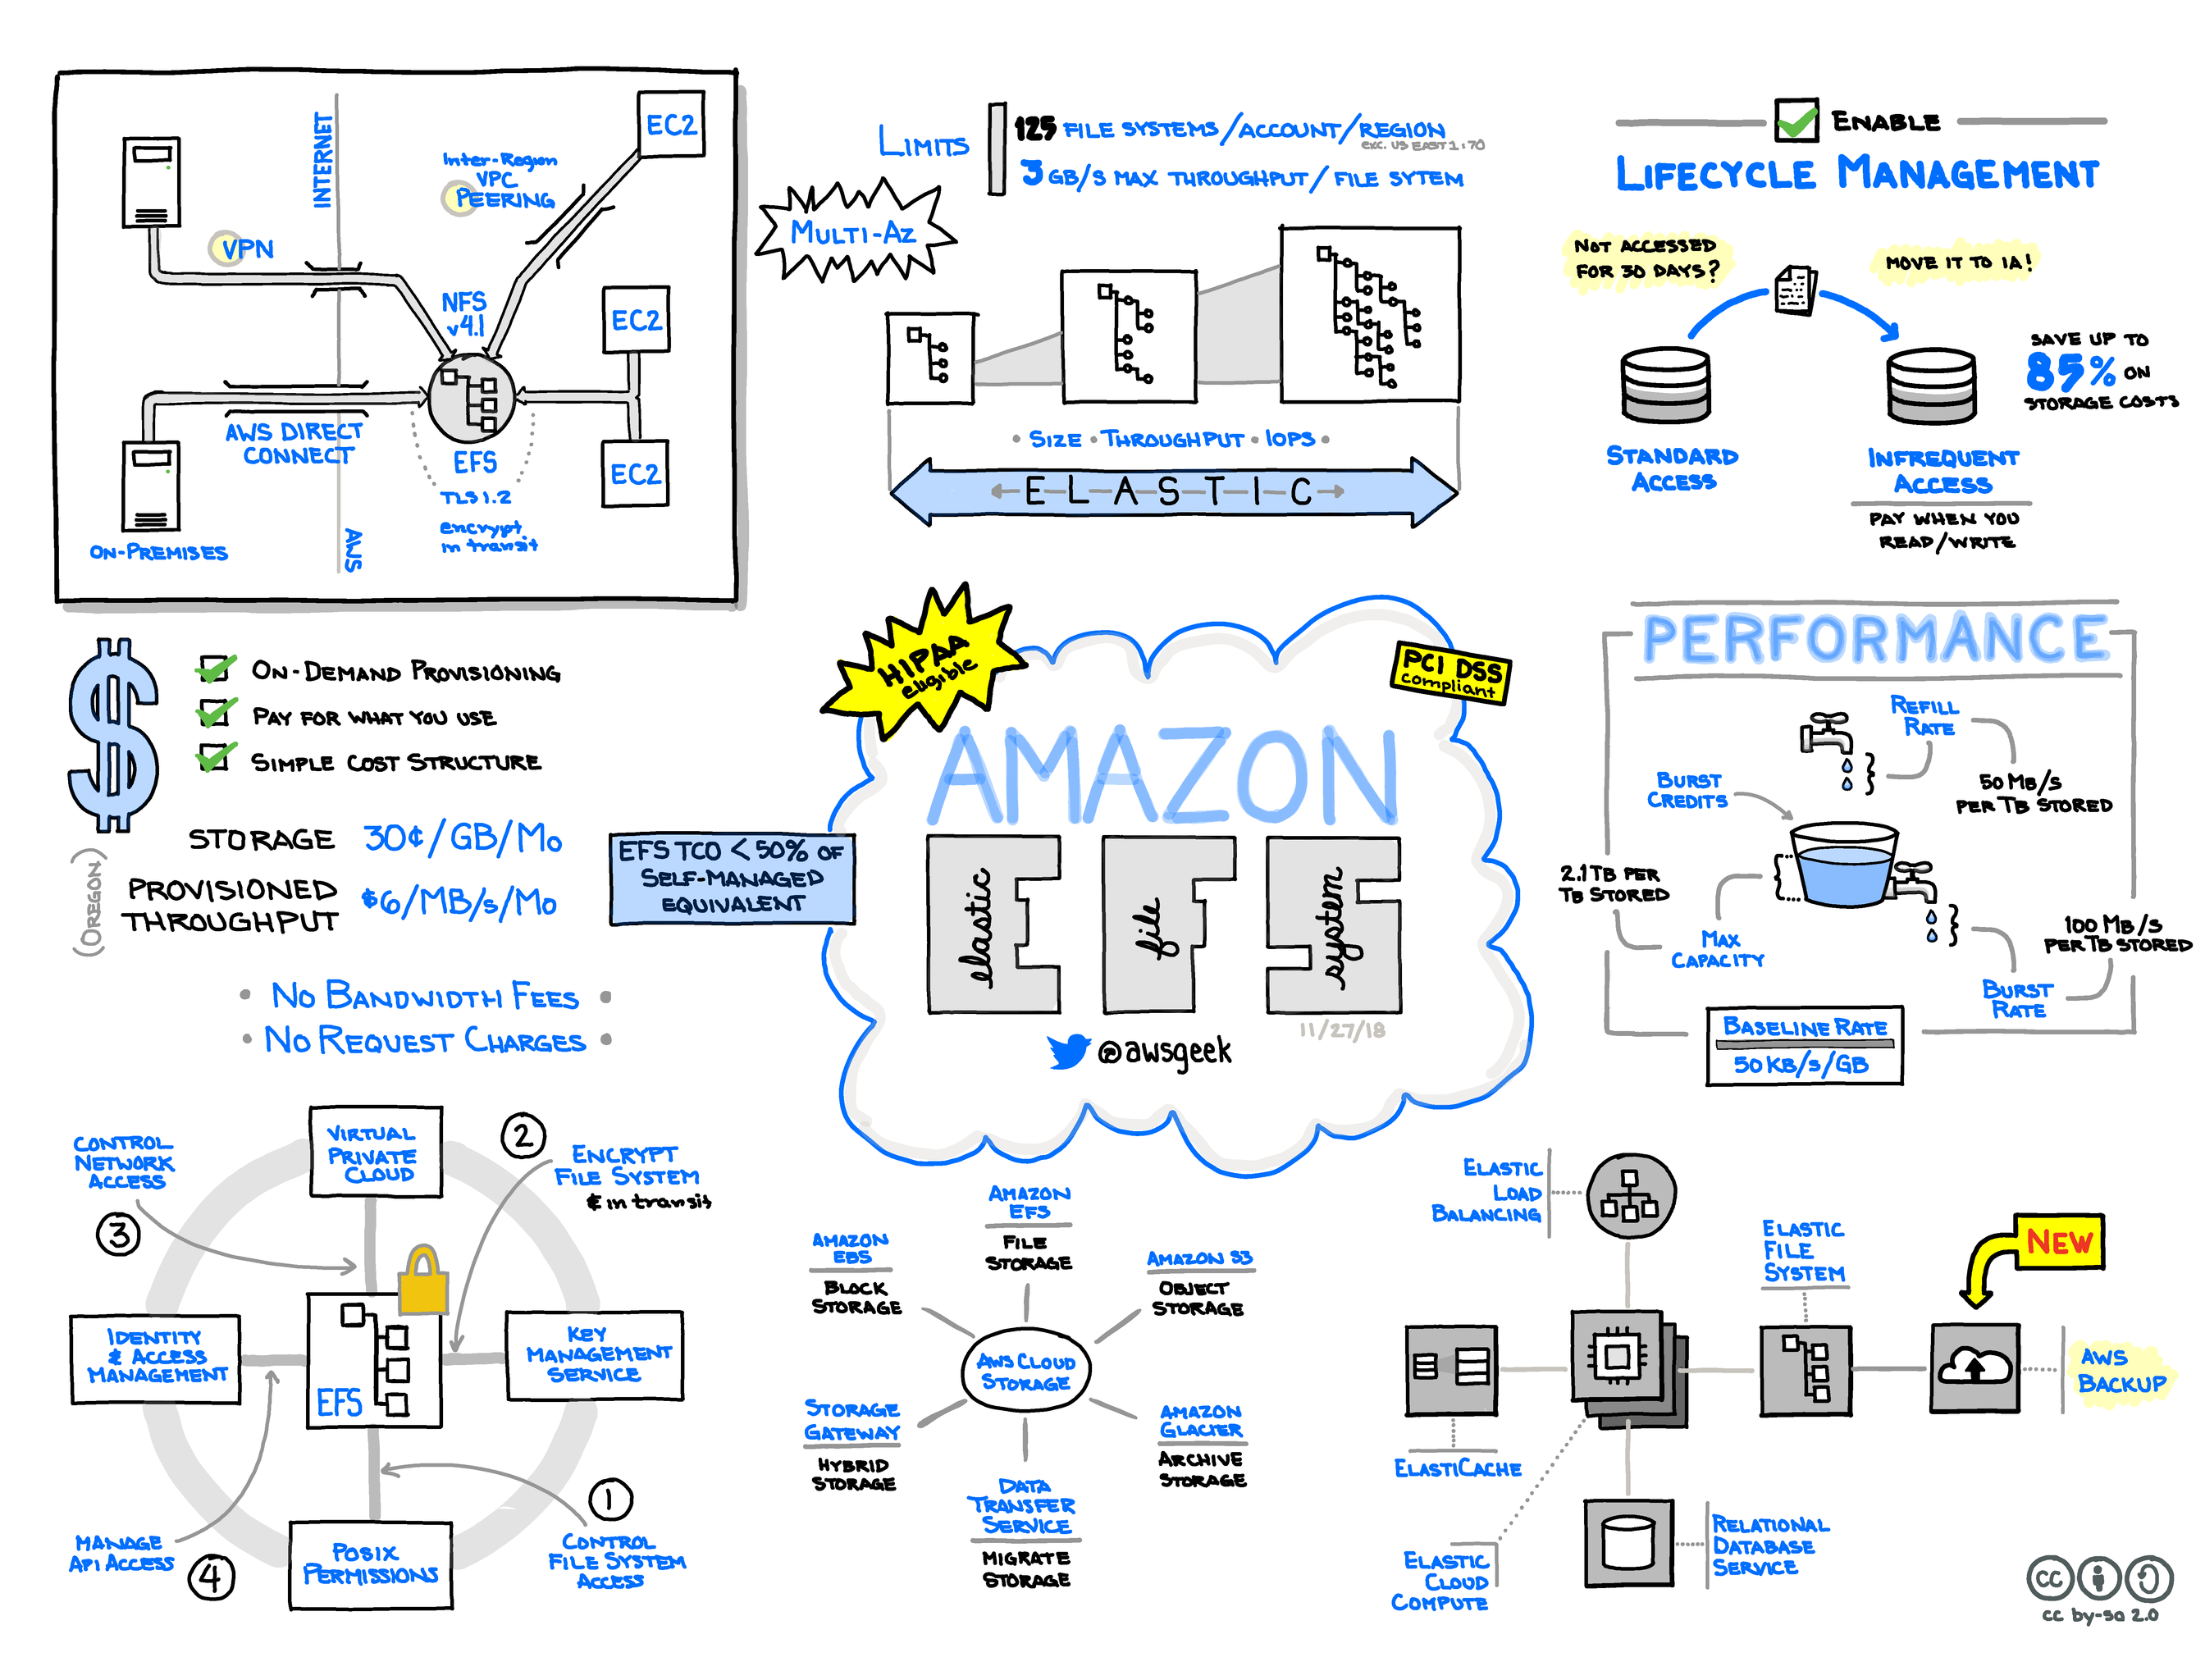 INTERNET
AWS
VPN
Inter-Region
VPC
PEERING
EC2
NFS
v4.1
EC2
EC2
AWS DIRECT
CONNECT
EFS
TLS 1.2
encrypt
in transit
ON-PREMISES
LIMITS
125 FILE SYSTEMS/ACCOUNT/REGION
EXC. US EAST 1: 70
3 GB/S MAX THROUGHPUT/FILE SYTEM
MULTI-AZ
• SIZE • THROUGHPUT • IOPS •
ELASTIC
ENABLE
LIFECYCLE MANAGEMENT
NOT ACCESSED
FOR 30 DAYS?
MOVE IT TO IA!
SAVE UP TO
85% ON
STORAGE COSTS
STANDARD
ACCESS
INFREQUENT
ACCESS
PAY WHEN YOU
READ/WRITE
$
ON-DEMAND PROVISIONING
PAY FOR WHAT YOU USE
SIMPLE COST STRUCTURE
(OREGON)
STORAGE 30¢/GB/MO
PROVISIONED
THROUGHPUT $6/MB/s/MO
EFS TCO < 50% OF
SELF-MANAGED
EQUIVALENT
• NO BANDWIDTH FEES •
• NO REQUEST CHARGES •
HIPAA
eligible
PCI DSS
compliant
AMAZON
elastic
file
system
11/27/18
@awsgeek
PERFORMANCE
REFILL
RATE
50 MB/S
PER TB STORED
BURST
CREDITS
2.1TB PER
TB STORED
MAX
CAPACITY
100 MB/S
PER TB STORED
BURST
RATE
BASELINE RATE
50 KB/S/GB
VIRTUAL
PRIVATE
CLOUD
CONTROL
NETWORK
ACCESS
3
2
ENCRYPT
FILE SYSTEM
& in transit
IDENTITY
& ACCESS
MANAGEMENT
EFS
KEY
MANAGEMENT
SERVICE
MANAGE
API ACCESS
4
POSIX
PERMISSIONS
1
CONTROL
FILE SYSTEM
ACCESS
AMAZON
EFS
FILE
STORAGE
AMAZON
EBS
BLOCK
STORAGE
AMAZON S3
OBJECT
STORAGE
AWS CLOUD
STORAGE
STORAGE
GATEWAY
HYBRID
STORAGE
AMAZON
GLACIER
ARCHIVE
STORAGE
DATA
TRANSFER
SERVICE
MIGRATE
STORAGE
ELASTIC
LOAD
BALANCING
ELASTIC
FILE
SYSTEM
NEW
AWS
BACKUP
ELASTICACHE
ELASTIC
CLOUD
COMPUTE
RELATIONAL
DATABASE
SERVICE
cc
cc by-sa 2.0